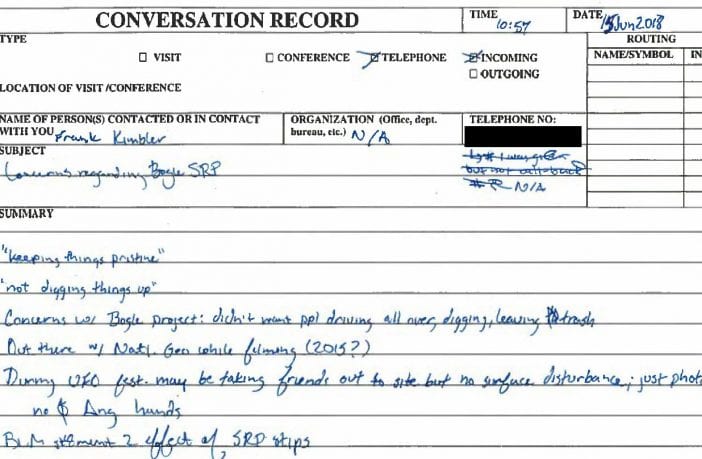 CONVERSATION RECORD
TIME
10:57
DATE
15 Jun 2018
TYPE
☐ VISIT ☐ CONFERENCE ☒ TELEPHONE ☒ INCOMING
☐ OUTGOING
ROUTING
NAME/SYMBOL IN
LOCATION OF VISIT/CONFERENCE
NAME OF PERSON(S) CONTACTED OR IN CONTACT
WITH YOU Frank Kimbler
ORGANIZATION (Office, dept.
bureau, etc.) N/A
TELEPHONE NO:
but not call-back
# N/A
SUBJECT
Concerns regarding Bogle SRP
SUMMARY
"keeping things pristine"
"not digging things up"
Concerns w/ Bogle project: didn't want ppl driving all over, digging, leaving trash
Out there w/ Natl. Geo while filming (2015?)
During UFO fest. may be taking friends out to site but no surface disturbance; just phot
no $ hands
BLM 2 effect of SRP stips